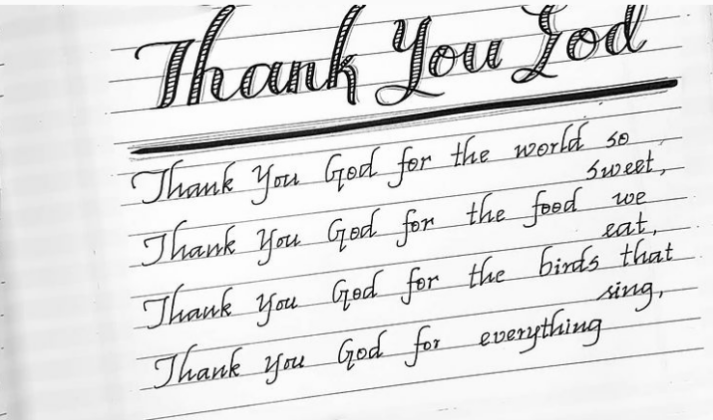 Thank You God
Thank You God for the world so
sweet,
Thank You God for the food we
eat,
Thank You God for the birds that
sing,
Thank You God for everything